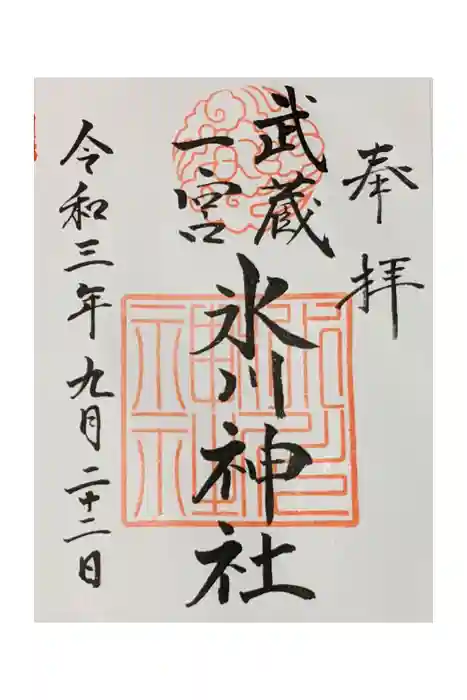 奉拝
武蔵
一宮
氷川神社
令和三年九月二十二日
氷川
神社